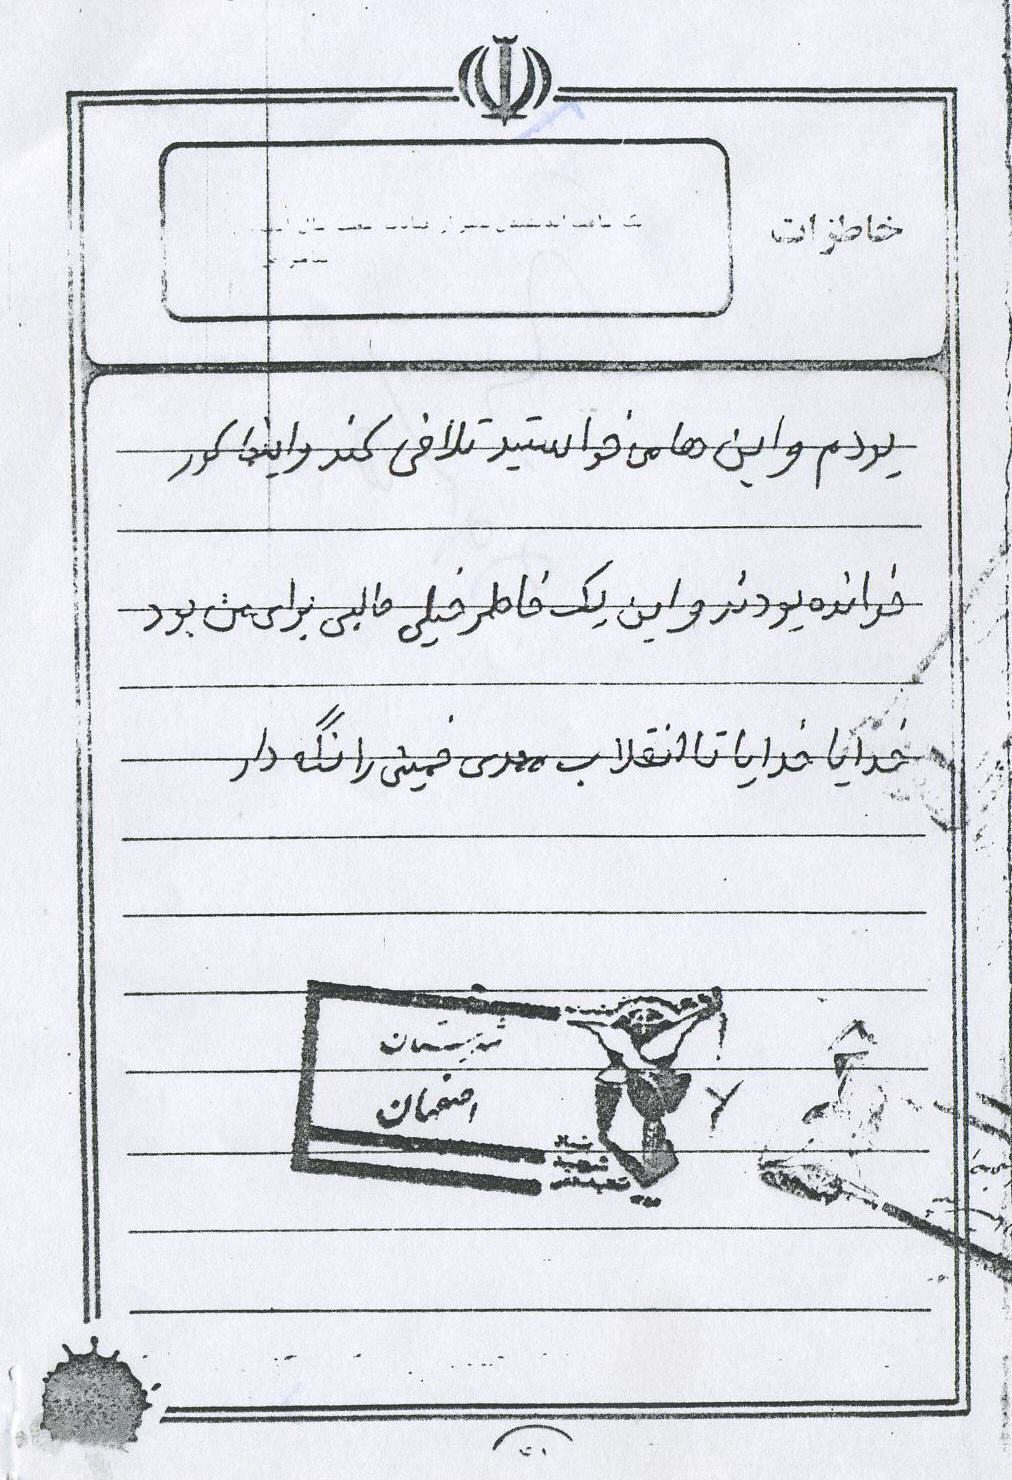 خاطرات
بودم و این ها می خواستید تلافی کند و اینجا کور
خوانده بودند و این یک خاطر خیلی جالبی برای من بود
خدایا خدایا تا انقلاب مهدی خمینی را نگه دار
شهرستان
اصفهان
بنیاد
شهید